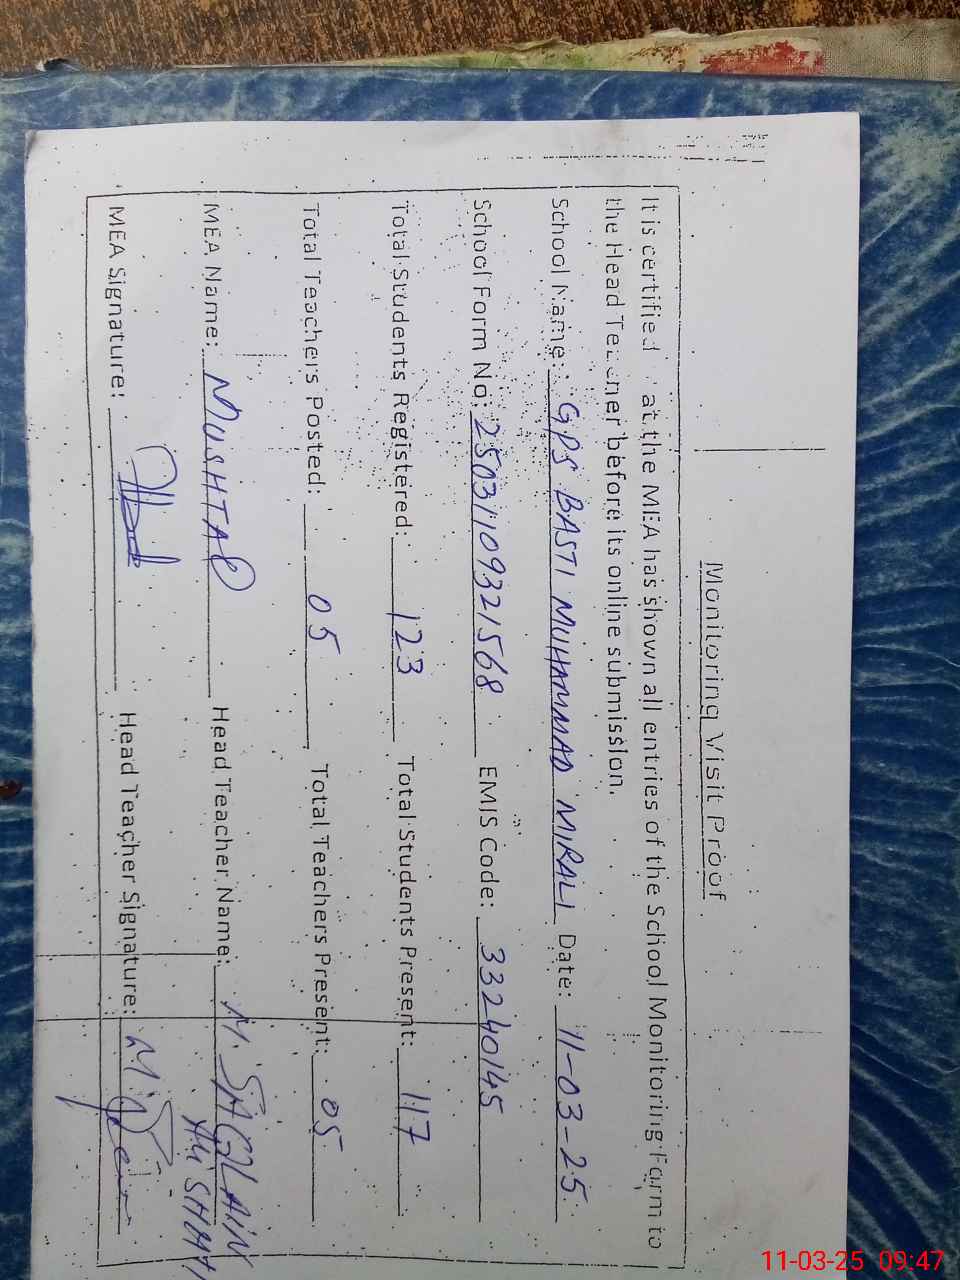 Monitoring Visit Proof
It is certified at the MEA has shown all entries of the School Monitoring Form to
the Head Teacher before its online submission.
School Name: GPS BASTI MUHAMMAD MIRALI Date: 11-03-25
School Form No: 250311109321568 EMIS Code: 33240145
Total Students Registered: 123 Total Students Present: 117
Total Teachers Posted: 05 Total Teachers Present: 05
MEA Name: MUSHTAQ Head Teacher Name: M. SAQLAIN
MEA Signature: Head Teacher Signature:
11-03-25 09:47